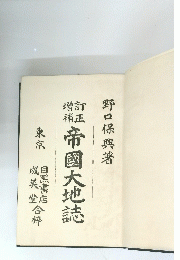 野口保興著
訂正
増補
帝國大地誌
東京
目黒書店
成美堂合梓